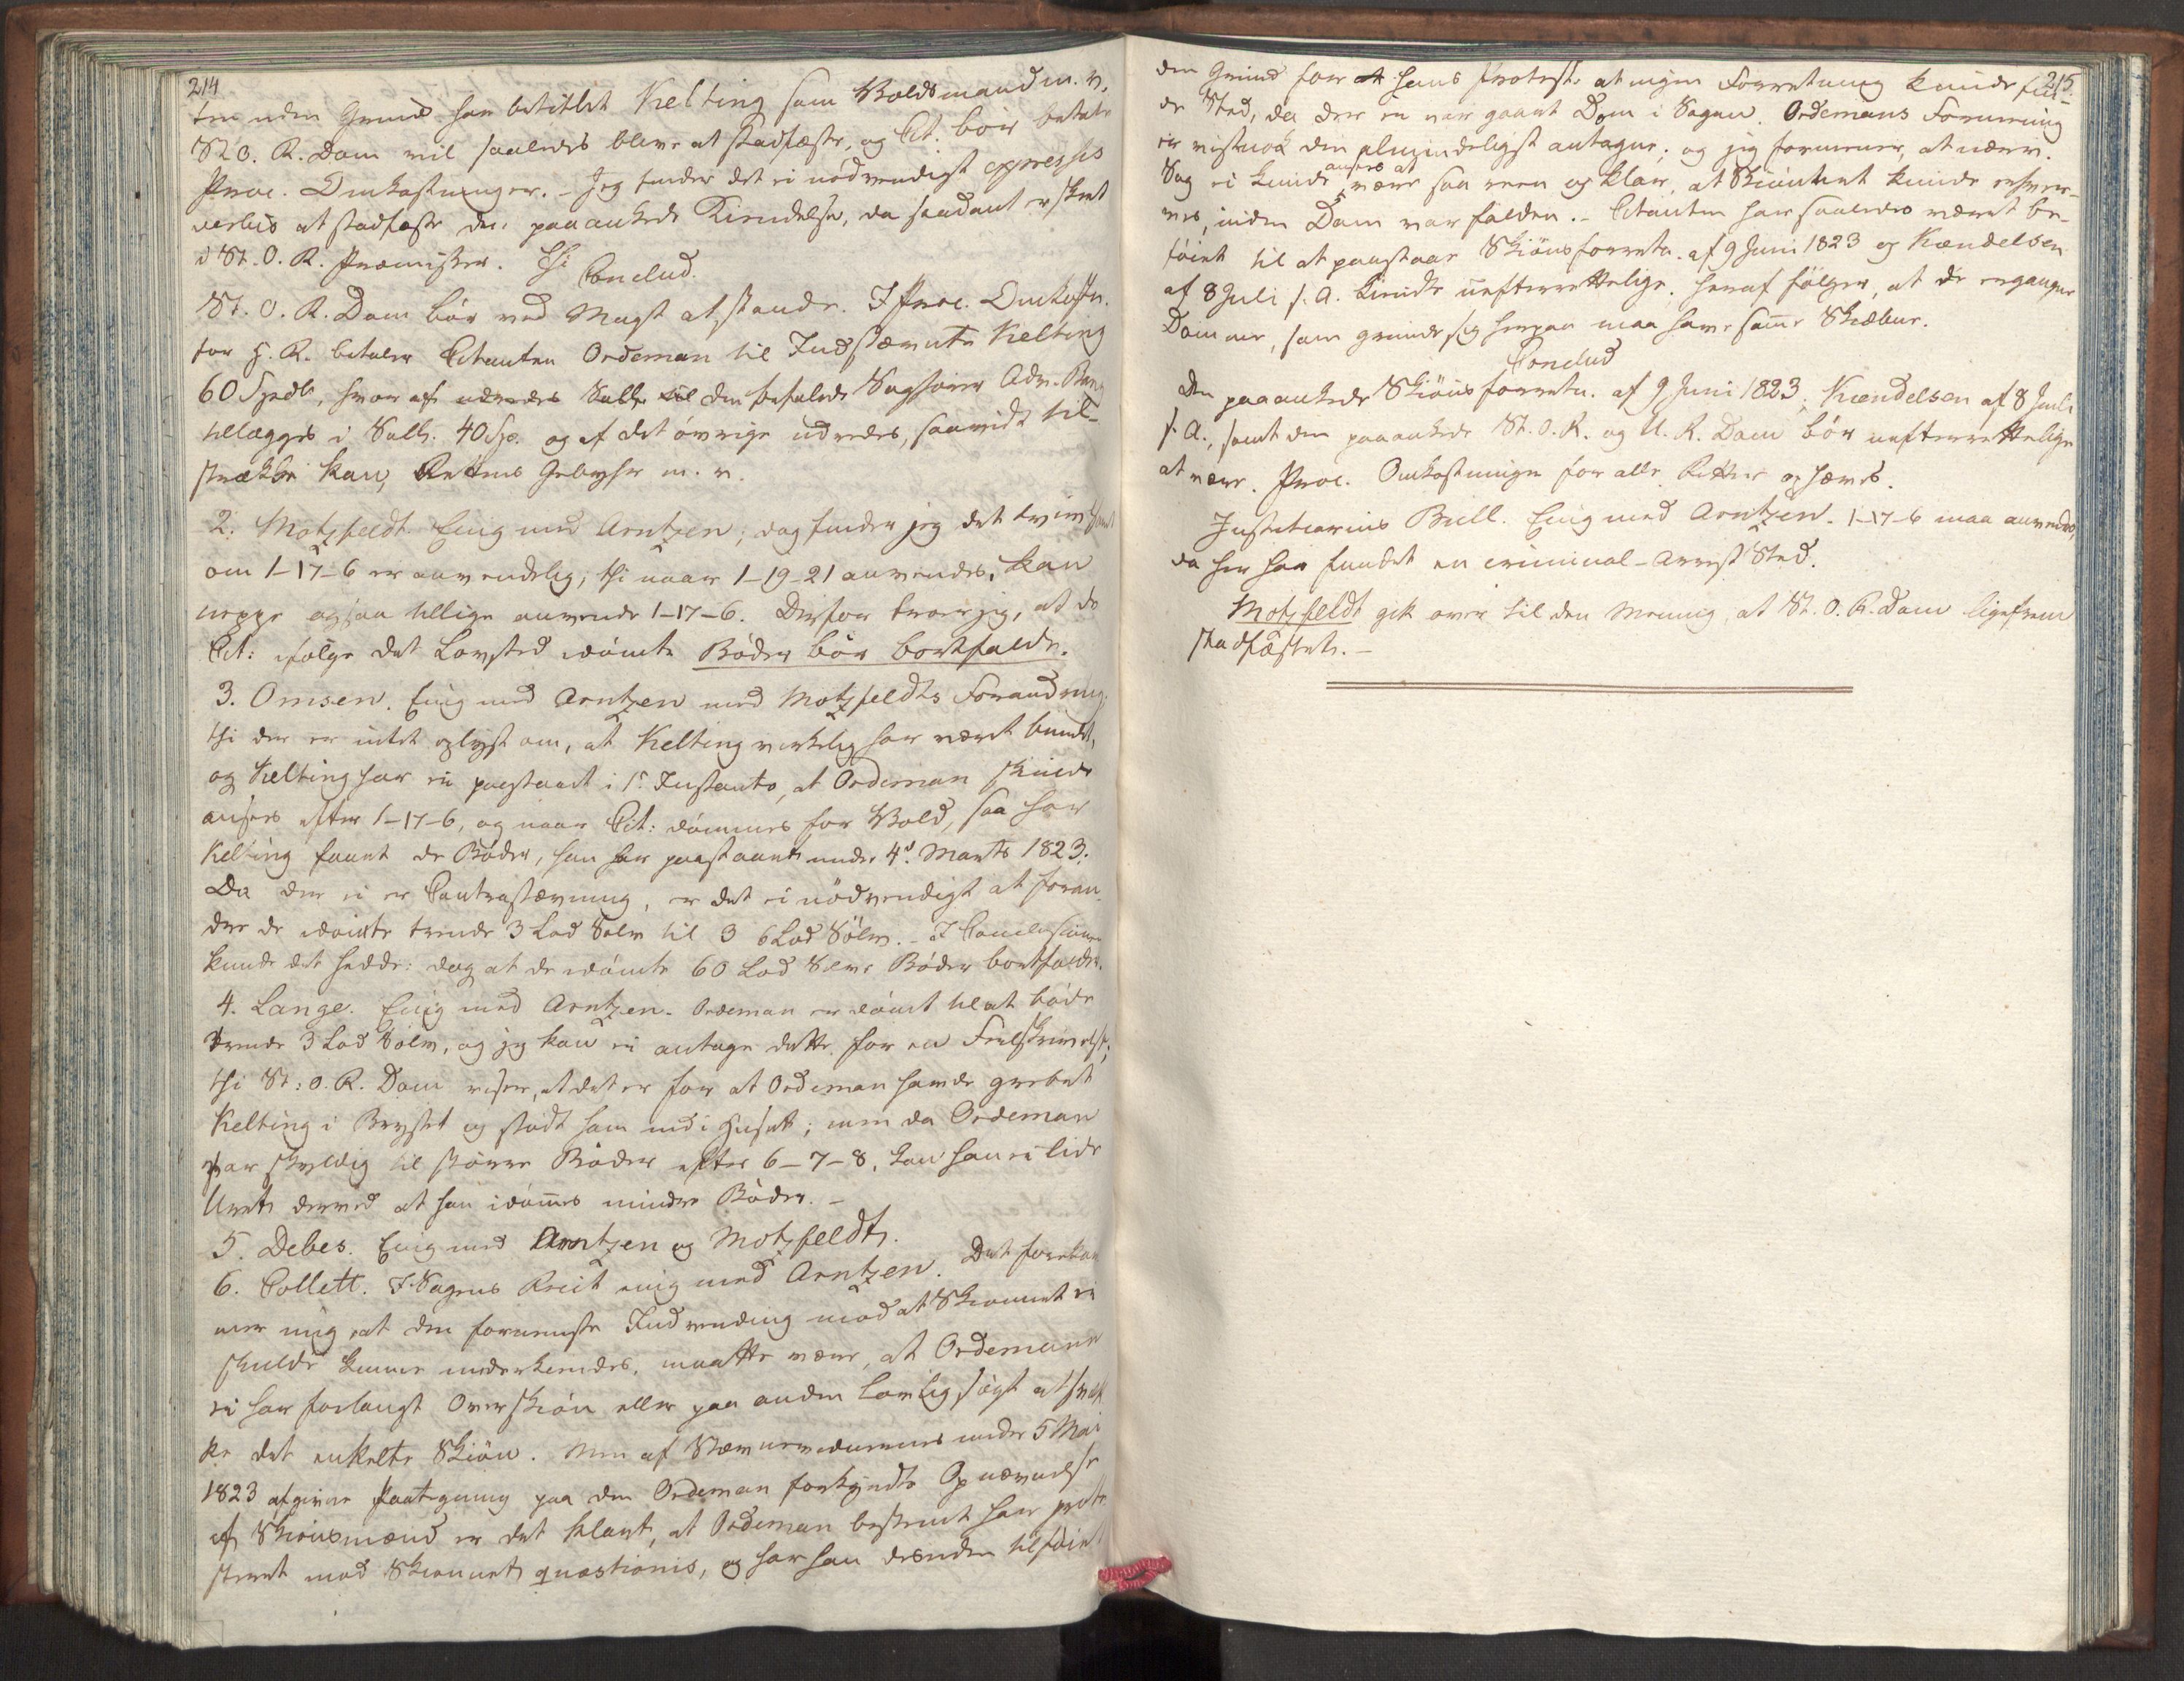 214
ten uden Grund har betitlet Kelting som Voldsmand m. v.
St. O. R. Dom vil saaledes blive at stadfæste, og Cit. bör betale
Proc. Omkostninger. - Jeg finder det ei nödvendigt expressis
verbis at stadfæste den paaankede Kiendelse, da saadant er skeet
i St. O. R. Præmisser. Thi
Conclud.
St. O. R. Dom bör ved Magt at stande. I Proc. Omkostn.
for H. R. betaler Citanten Ordeman til Indstævnte Kelting
60 Spdlr, hvoraf den befalede Sagförer Adv.
tillægges i Sallr. 40 Sp. og af det övrige udredes, saavidt til-
strække kan, Rettens Gebyhr m. v.
2. Motzfeldt. Enig med Arntzen; dog finder jeg det tvivlsomt
om 1-17-6 er anvendelig; thi naar 1-19-21 anvendes, kan
neppe ogsaa tillige anvendes 1-17-6. Derfor troer jeg, at de
Cit: ifölge det Lovsted idömte Böder bör bortfalde.
3. Omsen. Enig med Arntzen med Motzfeldts Forandring,
thi der er intet oplyst om, at Kelting virkelig har været bundet,
og Kelting har ei paastaaet i 1ste Instants, at Ordeman skulde
ansees efter 1-17-6, og naar Cit: dömmes for Vold, saa har
Kelting faaet de Böder, han har paastaaet under 4de Marts 1823.
Da der ei er Contrastævning, er det ei nödvendigt at foran-
dre de idömte trende 3 Lod Sölv til 3 6 Lod Sölv. - I Conclusionen
kunde det hedde: dog at de idömte 60 Lod Sölvs Böder bortfalder.
4. Lange. Enig med Arntzen. Ordeman er dömt til at böde
trende 3 Lod Sölv, og jeg kan ei antage dette for en Feilskrivelse;
thi St: O. R. Dom viser, at det er for at Ordeman havde grebet
Kelting i Brystet og stödt ham ind i Huset; men da Ordeman
var skyldig til större Böder efter 6-7-8, kan han ei lide
Uret derved at han idömes mindre Böder. -
5. Debes. Enig med Arntzen og Motzfeldt.
6. Collett. I Sagens Reeit enig med Arntzen. Det forekom-
mer mig, at den fornemste Indvending mod at Skionnet ei
skulde kunne underkiendes, maatte være, at Ordeman
ei har forlangt Overskiön eller paa anden lovlig sögt at svæk-
ke det enkelte Skiön. Men af Stævnevidnernes under 5 Mai
1823 afgivne Paategning paa den Ordeman forkyndte Opnævnelse
af Skiönsmænd er det klart, at Ordeman bestemt har prote-
steret mod Skionnet quæstionis, og har han desuden tilföiet
215.
den Grund for hans Protest at ingen Forretning kunde fin-
de Sted, da der ei var gaaet Dom i Sagen. Ordemans Formening
er vistnok den almindeligst antagne; og jeg formener, at nærv.
Sag ei kunde ansees at være saa reen og klar, at Skiönnet kunde erhver-
ves, inden Dom var falden. - Citanten har saaledes været be-
föiet til at paastaae Skiönsforretn. af 9 Juni 1823 og Kiendelsen
af 8 Juli s. A. kiendte uefterrettelige. Heraf fölger, at de ergangne
Domme, som grunde sig herpaa maa have samme Skiebne.
Conclud
Den paaankede Skiönsforretn. af 9 Juni 1823, Kiendelsen af 8 Juli
s. A., samt den paaankede St. O. R. og U. R. Dom bör uefterrettelige
at være. Proc. Omkostninger for alle Retter ophæves.
Justitiarius Bull. Enig med Arntzen. 1-17-6 maa anvendes,
da her har fundet en criminal-Arrest Sted.
Motzfeldt gik over til den Mening, at St. O. R. Dom ligefrem
stadfæstes. -